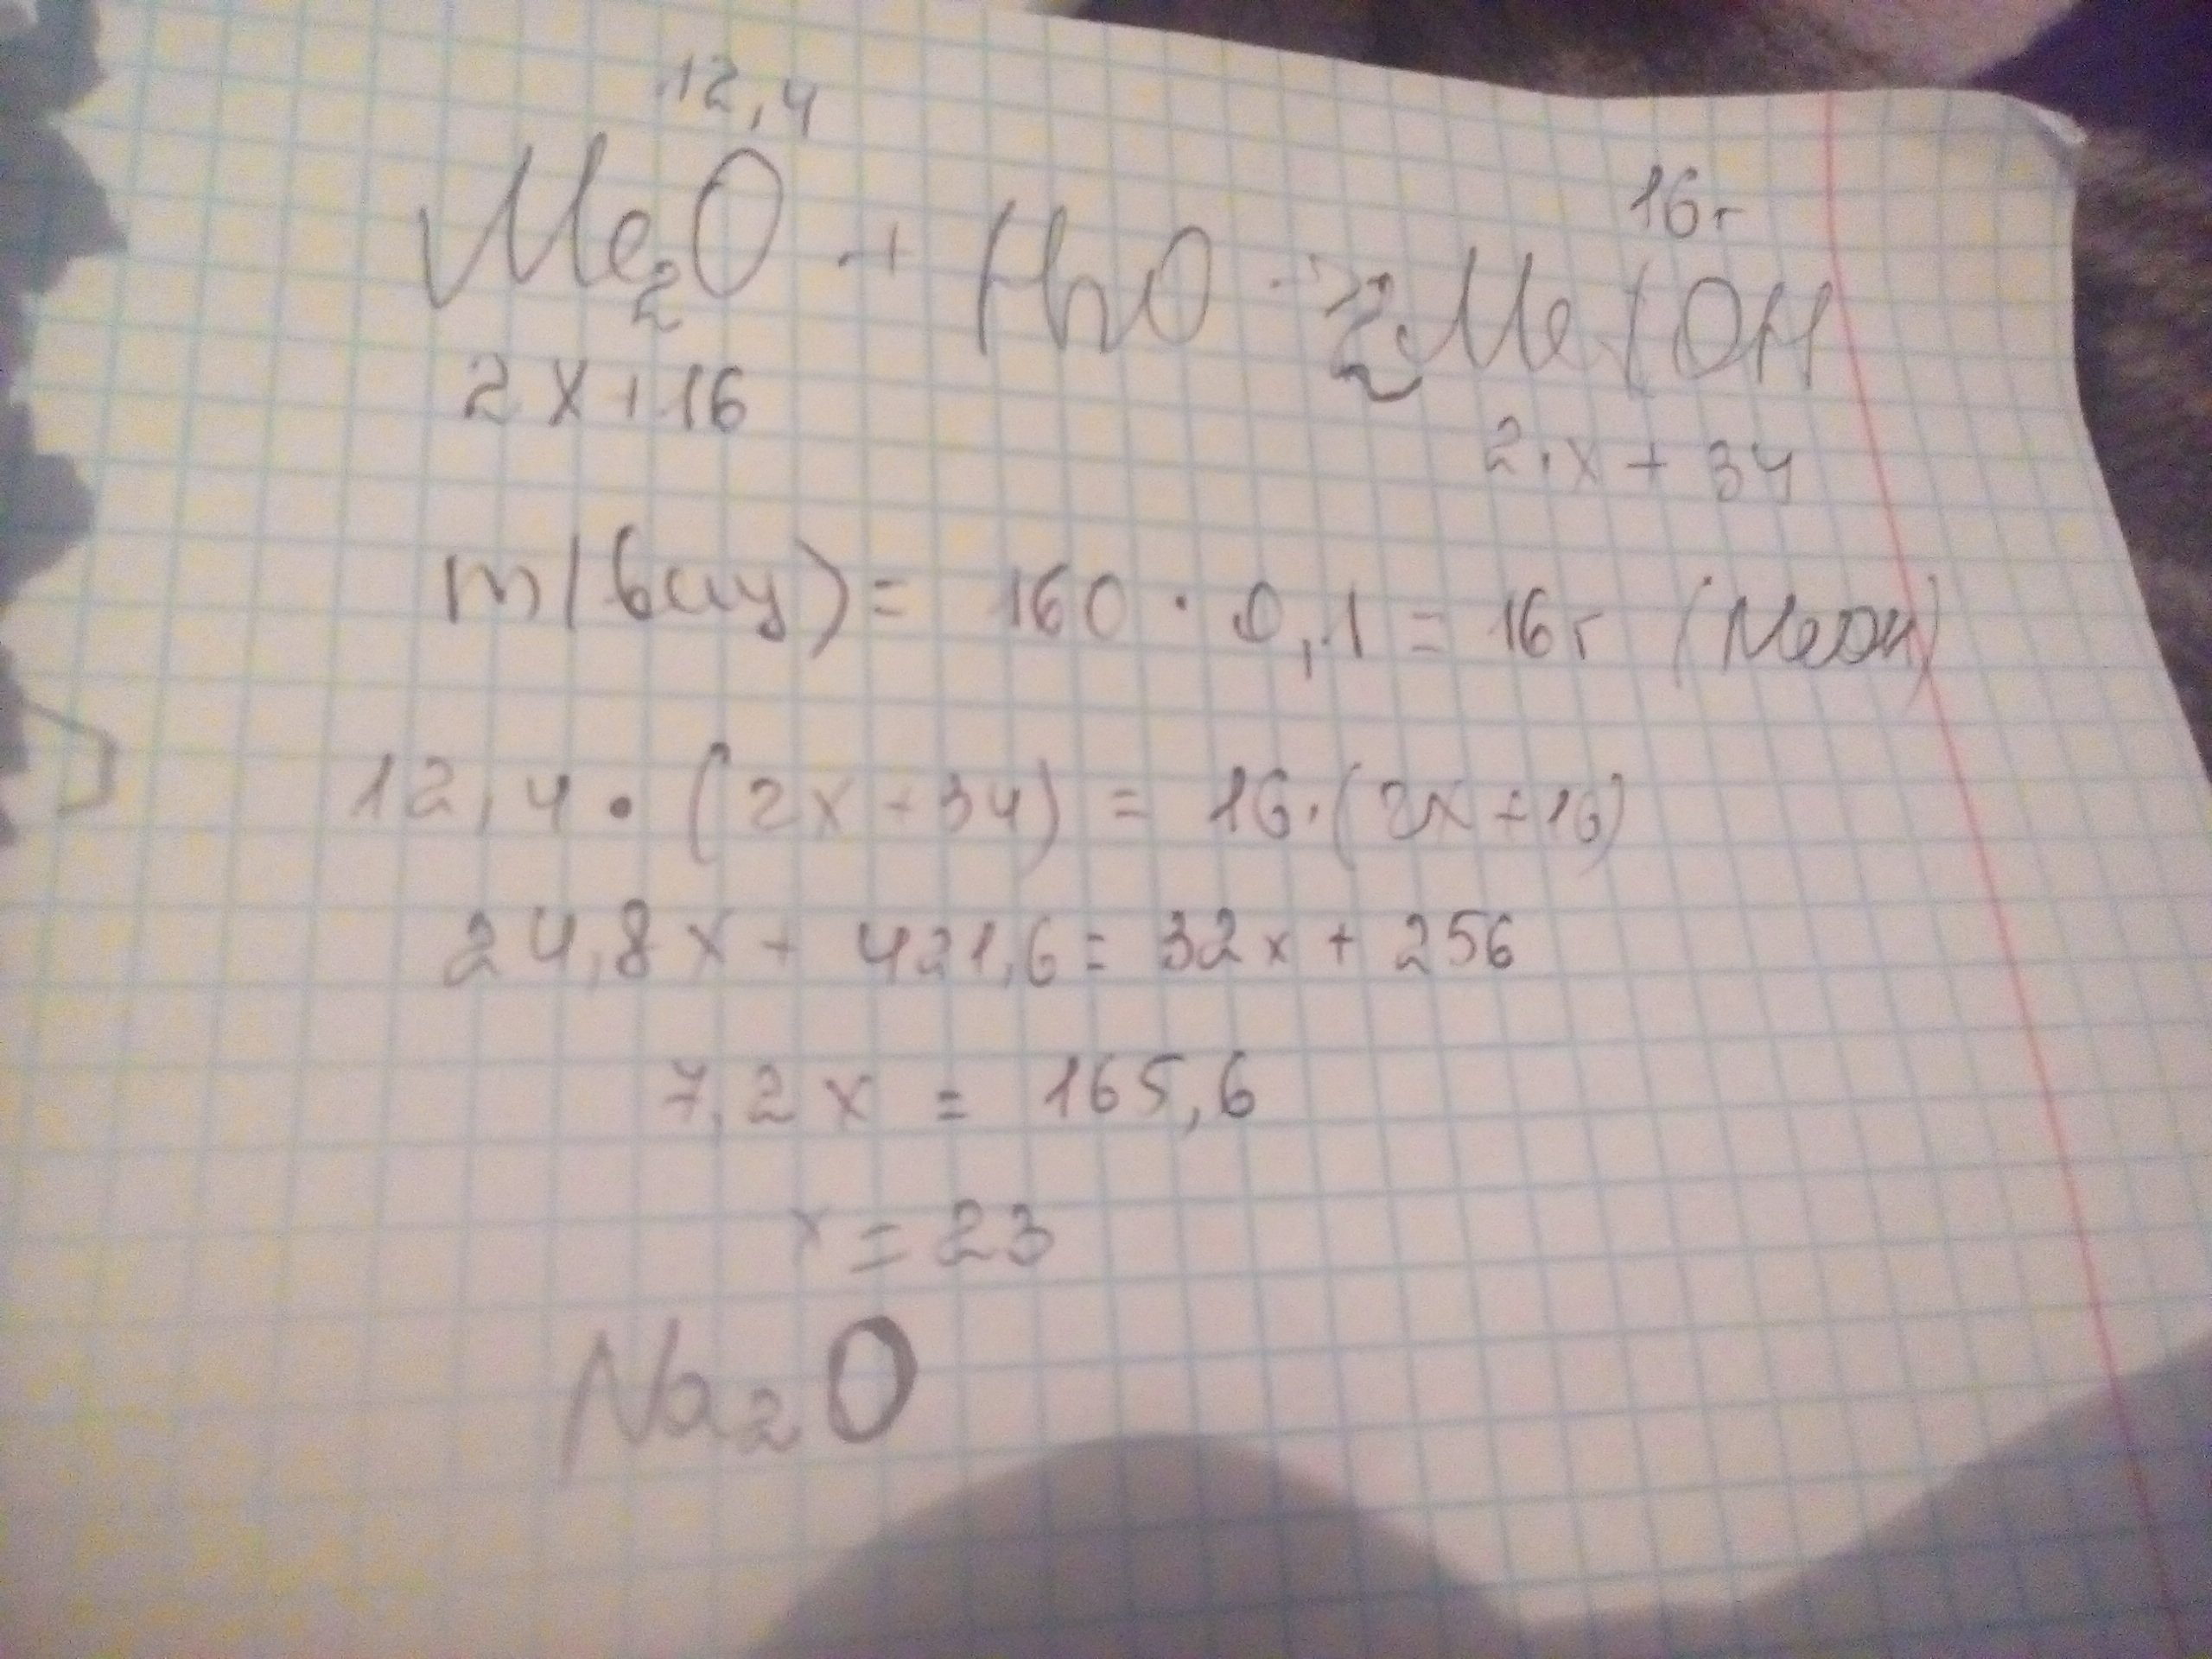 12,4
16г
Me2O + H2O → 2Me(OH
2x+16
2·x + 34
m(вещ) = 160 · 0,1 = 16г (MeOH)
12,4 · (2x+34) = 16·(2x+16)
24,8x + 421,6 = 32x + 256
7,2x = 165,6
x = 23
Na2O